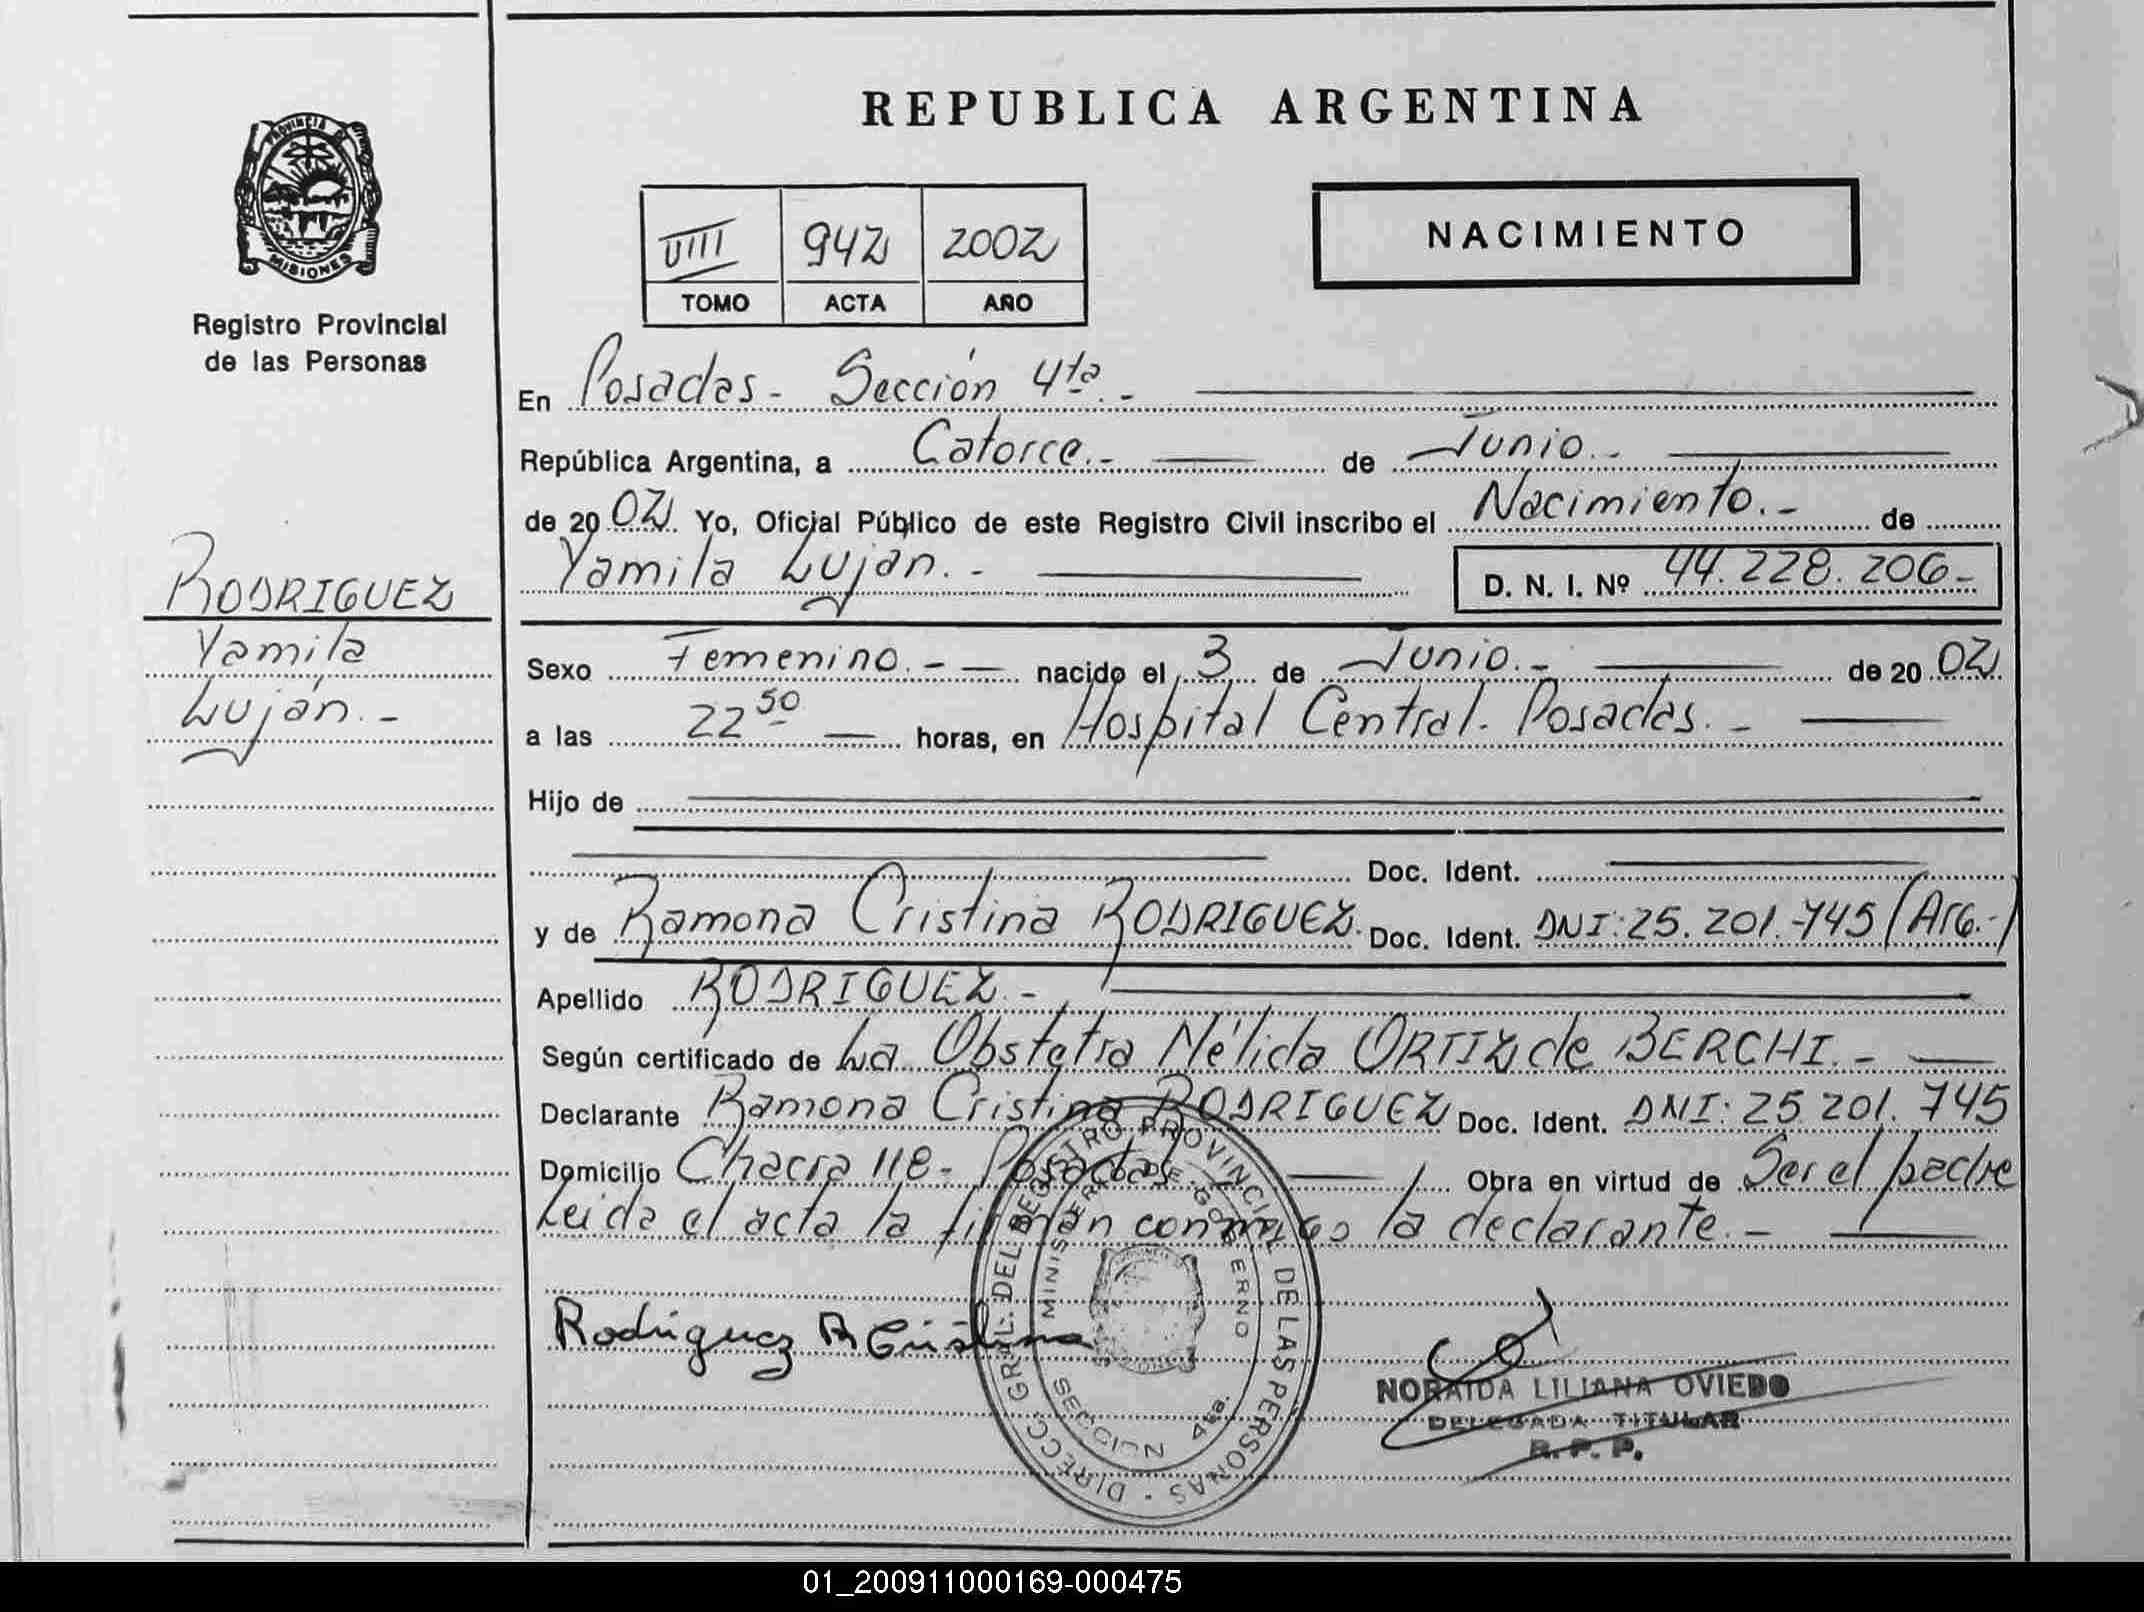 REPUBLICA ARGENTINA
PROVINCIA DE
MISIONES
Registro Provincial
de las Personas
VIII 942 2002
TOMO ACTA AÑO
NACIMIENTO
RODRIGUEZ
Yamila
Luján.-
En Posadas - Sección 4ta.-
República Argentina, a Catorce.- de Junio.-
de 2002. Yo, Oficial Público de este Registro Civil inscribo el Nacimiento.- de
Yamila Luján.- D. N. I. Nº 44.228.206-
Sexo Femenino.- nacido el 3 de Junio.- de 2002
a las 22 50 horas, en Hospital Central. Posadas.-
Hijo de
Doc. Ident.
y de Ramona Cristina RODRIGUEZ. Doc. Ident. DNI: 25.201.745 (Arg.-)
Apellido RODRIGUEZ.-
Según certificado de La Obstetra Nélida ORTIZ de BERCHI.-
Declarante Ramona Cristina RODRIGUEZ Doc. Ident. DNI: 25.201.745
Domicilio Chacra 118- Posadas Obra en virtud de Ser el padre
Leida el acta la firman conmigo la declarante.-
Rodriguez R Cristina
DIRECC. GRAL. DEL REGISTRO PROVINCIAL DE LAS PERSONAS
MINISTERIO DE GOBIERNO
SECCION 4ta.
NORAIDA LILIANA OVIEDO
DELEGADA TITULAR
R. P. P.
01_200911000169-000475